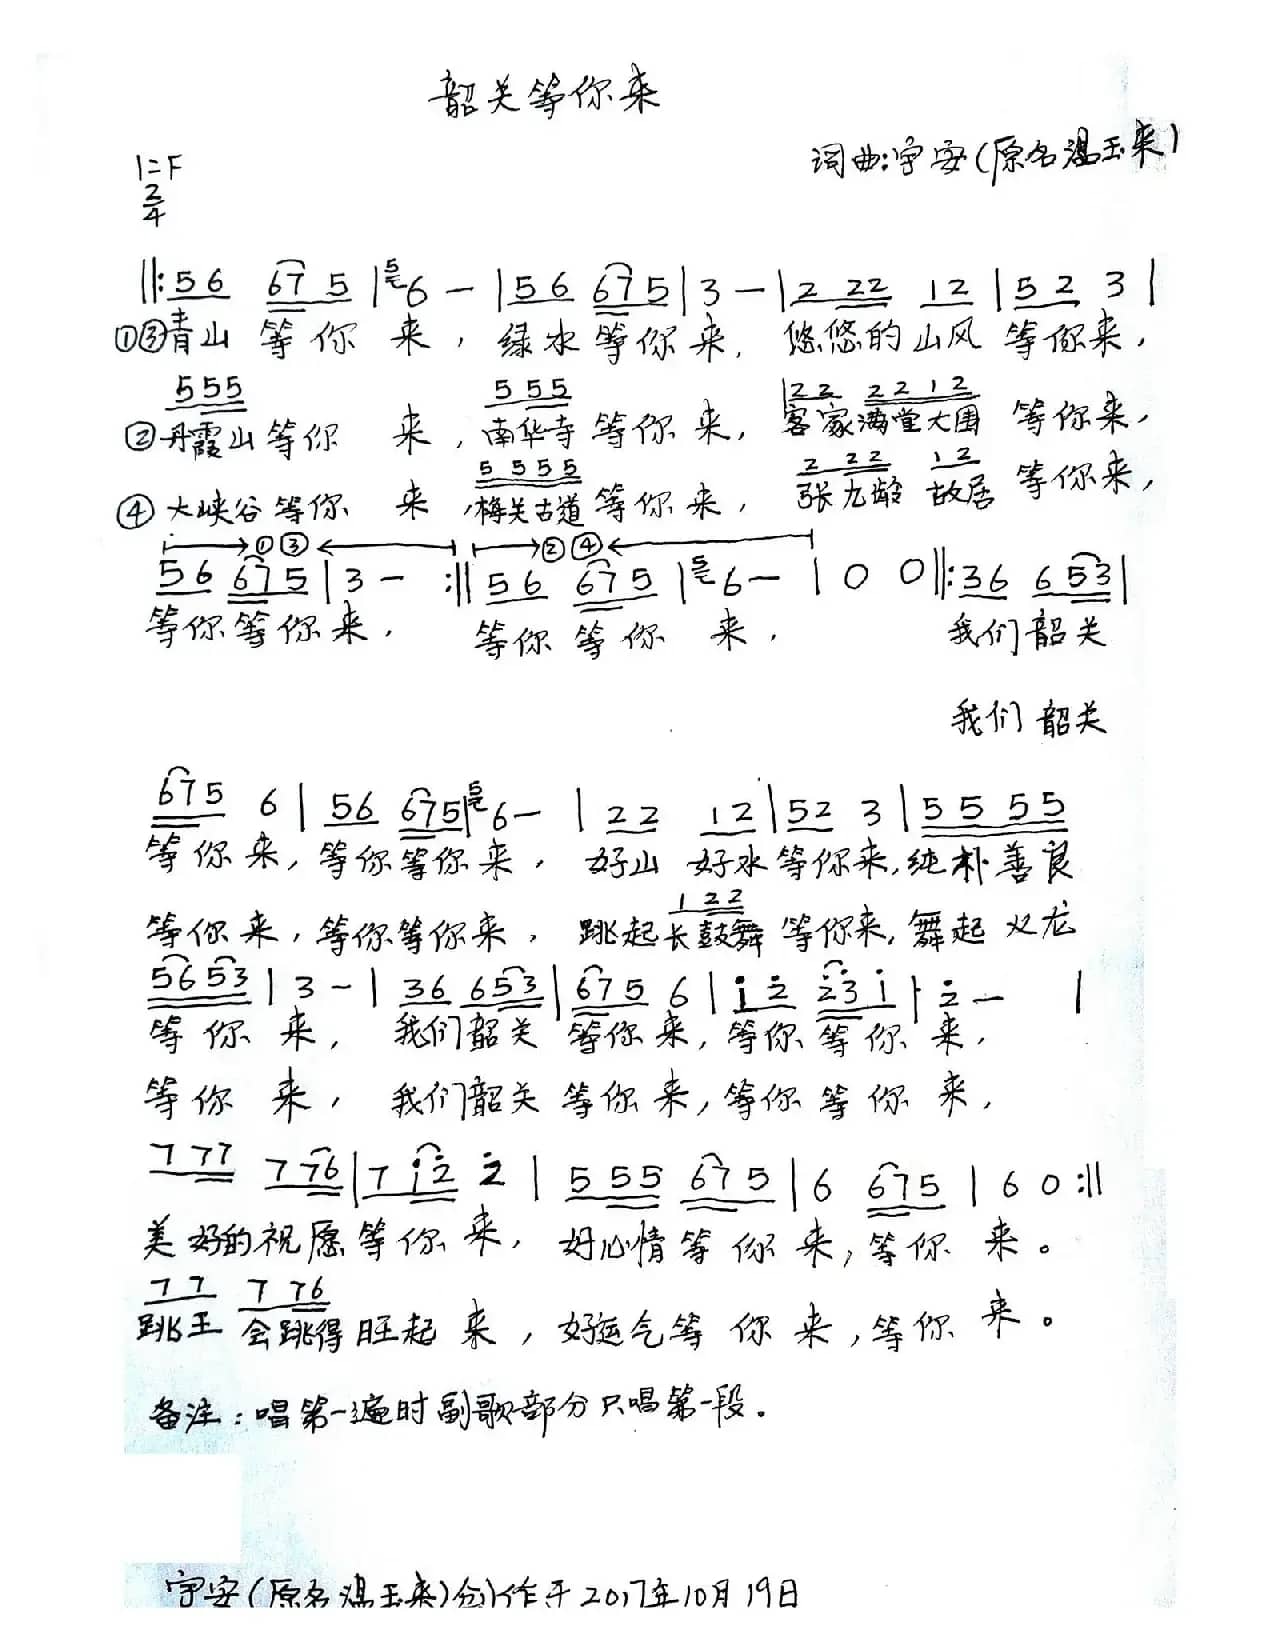 韶关等你来
词曲:宇安(原名温玉来)
1=F
2/4
‖: 5 6 6 7 5 | 5 6 — | 5 6 6 7 5 | 3 — | 2 2 2 1 2 | 5 2 3 |
①③青山 等你 来, 绿水等你来, 悠悠的山风 等你来,
5 5 5 5 5 5 2 2 2 2 1 2
②丹霞山等你 来, 南华寺等你来, 客家满堂大围 等你来,
5 5 5 5 2 2 2 1 2
④大峡谷等你 来, 梅关古道等你来, 张九龄 故居 等你来,
①③ ②④
5 6 6 7 5 | 3 — :‖ 5 6 6 7 5 | 5 6 — | 0 0 ‖: 3 6 6 5 3 |
等你等你来, 等你等你 来, 我们韶关
我们韶关
6 7 5 6 | 5 6 6 7 5 | 5 6 — | 2 2 1 2 | 5 2 3 | 5 5 5 5
等你来, 等你等你来, 好山 好水等你来, 纯朴善良
1 2 2
等你来, 等你等你来, 跳起长鼓舞 等你来, 舞起双龙
5 6 5 3 | 3 — | 3 6 6 5 3 | 6 7 5 6 | i 2̇ 2̇ 3̇ i | 2̇ — |
等你 来, 我们韶关 等你来, 等你等你 来,
等你 来, 我们韶关 等你来, 等你等你 来,
7 7 7 7 7 6 | 7 i 2̇ 2̇ | 5 5 5 6 7 5 | 6 6 7 5 | 6 0 :‖
美好的祝愿等你 来, 好心情等你来, 等你 来。
7 7 7 7 6
跳王 会跳得旺起来, 好运气等你来, 等你 来。
备注:唱第一遍时副歌部分只唱第一段。
宇安(原名温玉来)创作于2017年10月19日